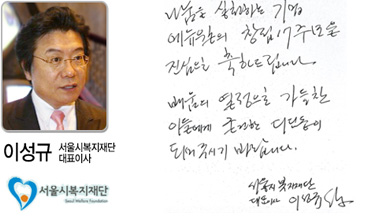 나눔을 실천하는 기업
에듀윌의 창립 17주년을
진심으로 축하드립니다.
배움의 열정으로 가득찬
이들에게 든든한 디딤돌이
되어주시기 바랍니다.
서울시복지재단
대표이사 이성규
이성규 서울시복지재단
대표이사
서울시복지재단
Seoul Welfare Foundation